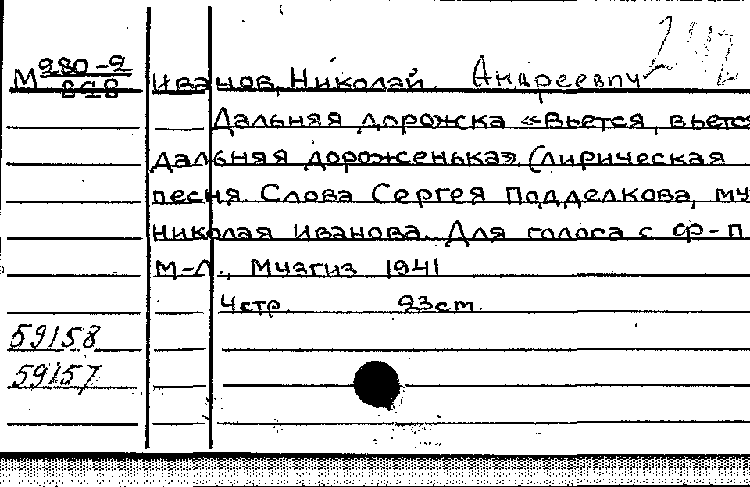 242
М 280-2 Иванов, Николай Андреевич
Дальняя дорожка «Вьется, вьетс
дальняя дороженька», (лирическая
песня. Слова Сергея Подделкова, му
Николая Иванова. Для голоса с ф-п
М-Л., Музгиз 1941
4стр. 23cm.
59158
59157